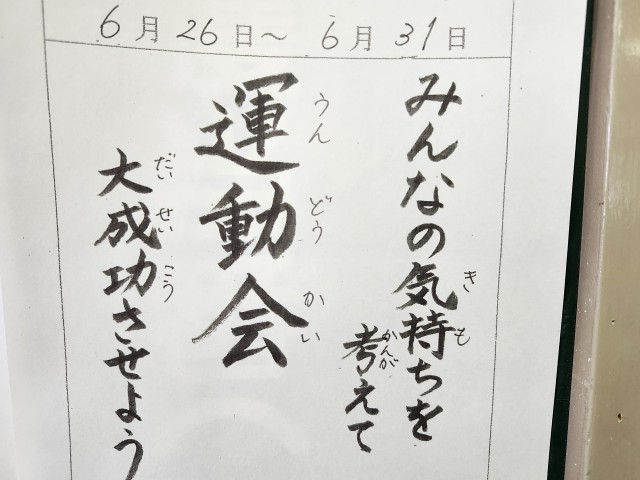 6月26日～6月31日
みんなの気持ちを
考えて
運動会
大成功させよう
き
も
かんが
うん
どう
かい
だい
せい
こう